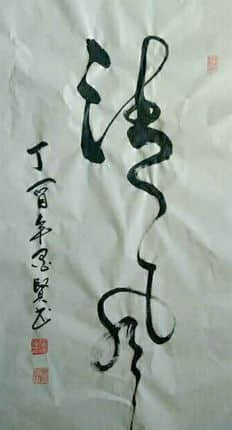 清风
丁酉年 贤书